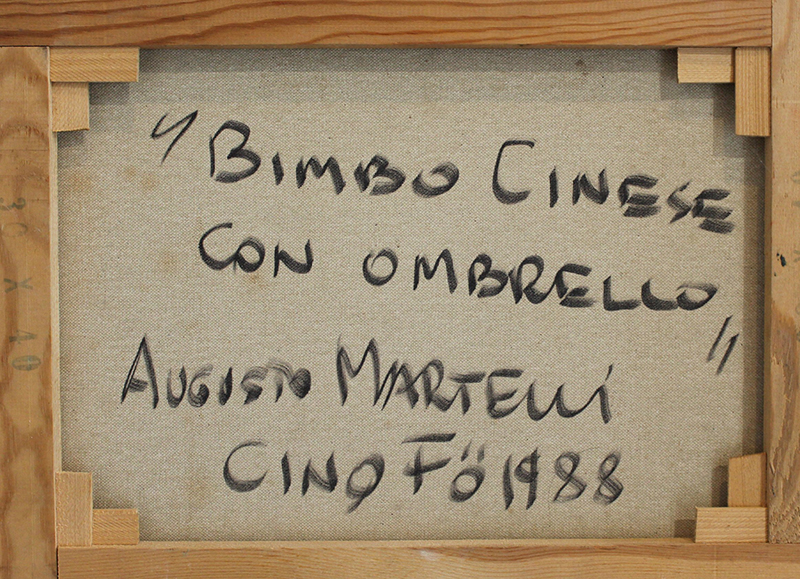 "BIMBO CINESE
CON OMBRELLO"
AUGUSTO MARTELLI
CINQ FÖ 1988